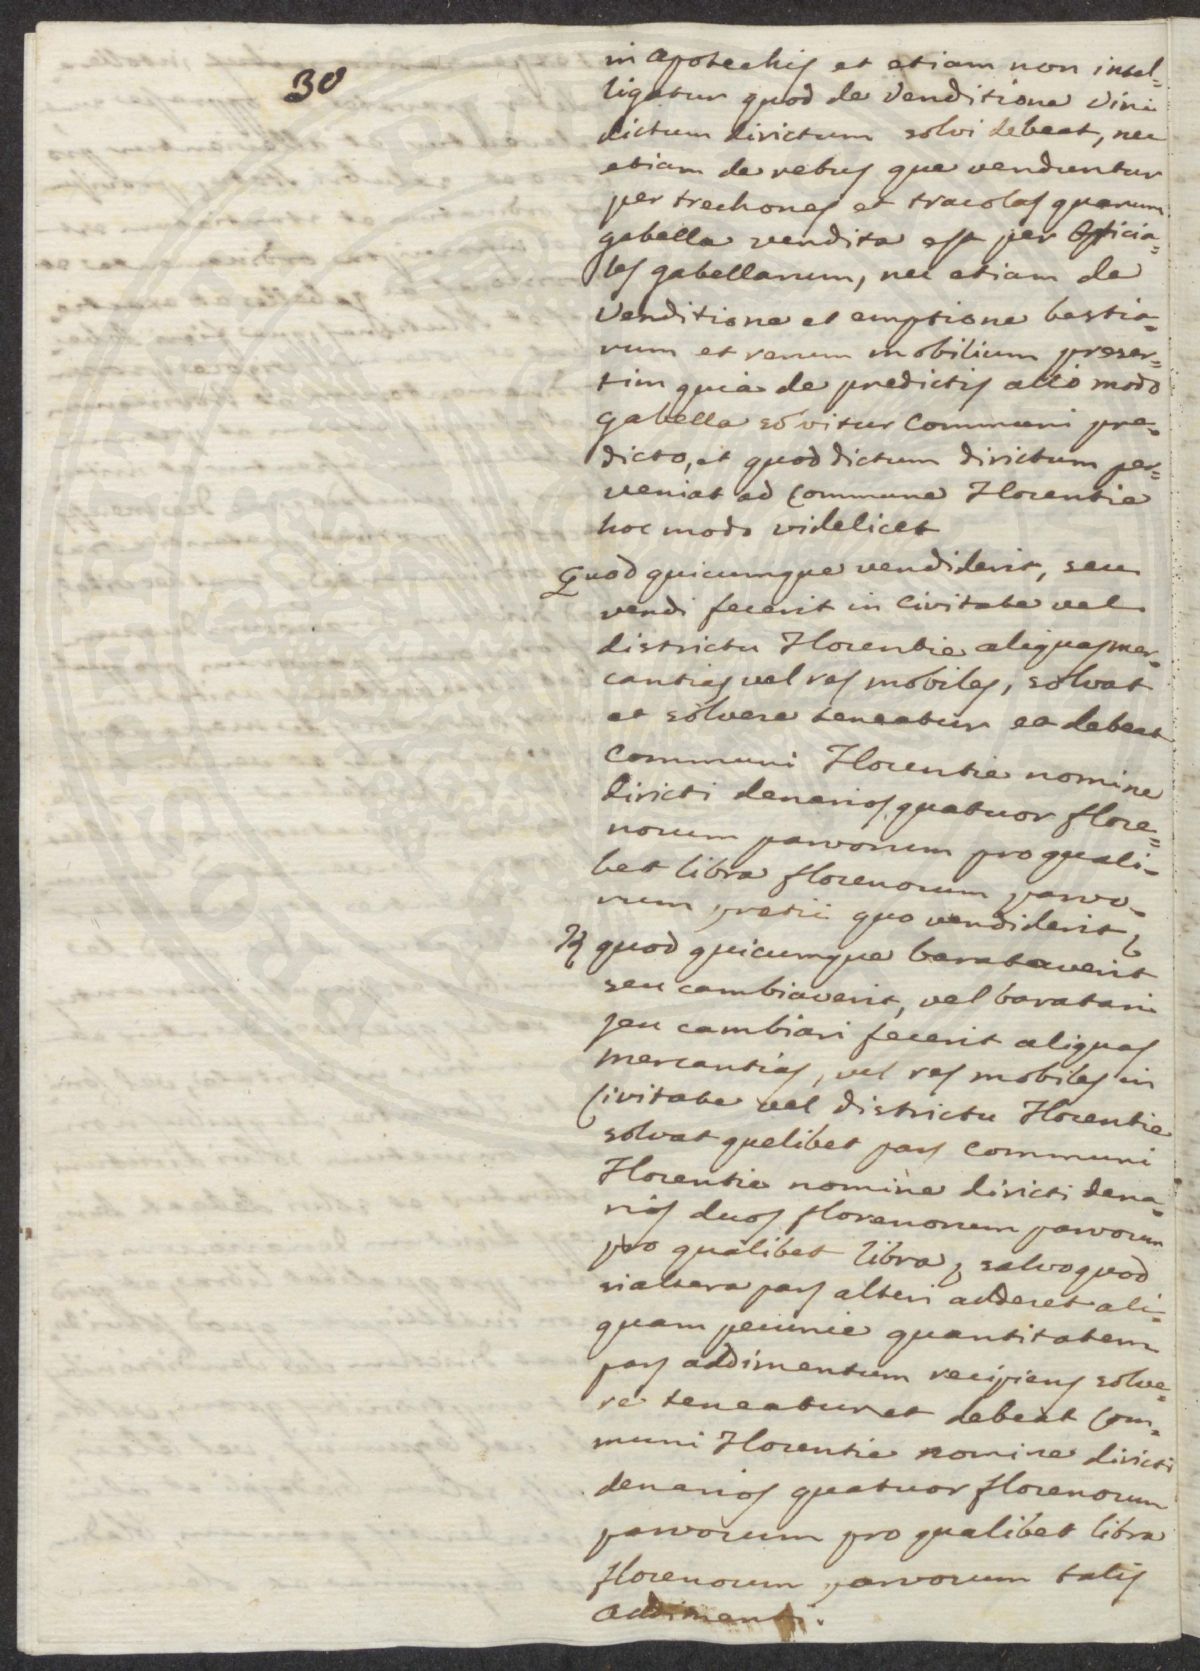 30
in apotechis et etiam non intel=
ligatur quod de venditione vini
dictum dirictum solvi debeat, nec
etiam de rebus que venduntur
per trechones et tracolas quarum
gabella vendita est per officia=
les gabellarum, nec etiam de
venditione et emptione bestia=
rum et rerum mobilium preser=
tim quia de predictis alio modo
gabella solvitur Communi pre=
dicto, et quod dictum dirictum per=
veniat ad Commune Florentie
hoc modo videlicet
Quod quicumque vendiderit, seu
vendi fecerit in Civitate vel
districtu Florentie aliquas mer=
cantias vel res mobiles, solvat
et solvere teneatur et debeat
Communi Florentie nomine
diricti denarios quatuor flore=
norum parvorum pro quali=
bet libra florenorum parvo=
rum pretii quo vendiderit,
Et quod quicumque barataverit
seu cambiaverit, vel baratari
seu cambiari fecerit aliquas
mercantias, vel res mobiles in
Civitate vel districtu Florentie
solvat quelibet pars Communi
Florentie nomine diricti dena=
rios duos florenorum parvorum
pro qualibet libra, salvo quod
si altera pars alteri adderet ali=
quam pecunie quantitatem
pars addimentum recipiens solve=
re teneatur et debeat Com=
muni Florentie nomine diricti
denarios quatuor florenorum
parvorum pro qualibet libra
florenorum parvorum talis
addimenti.